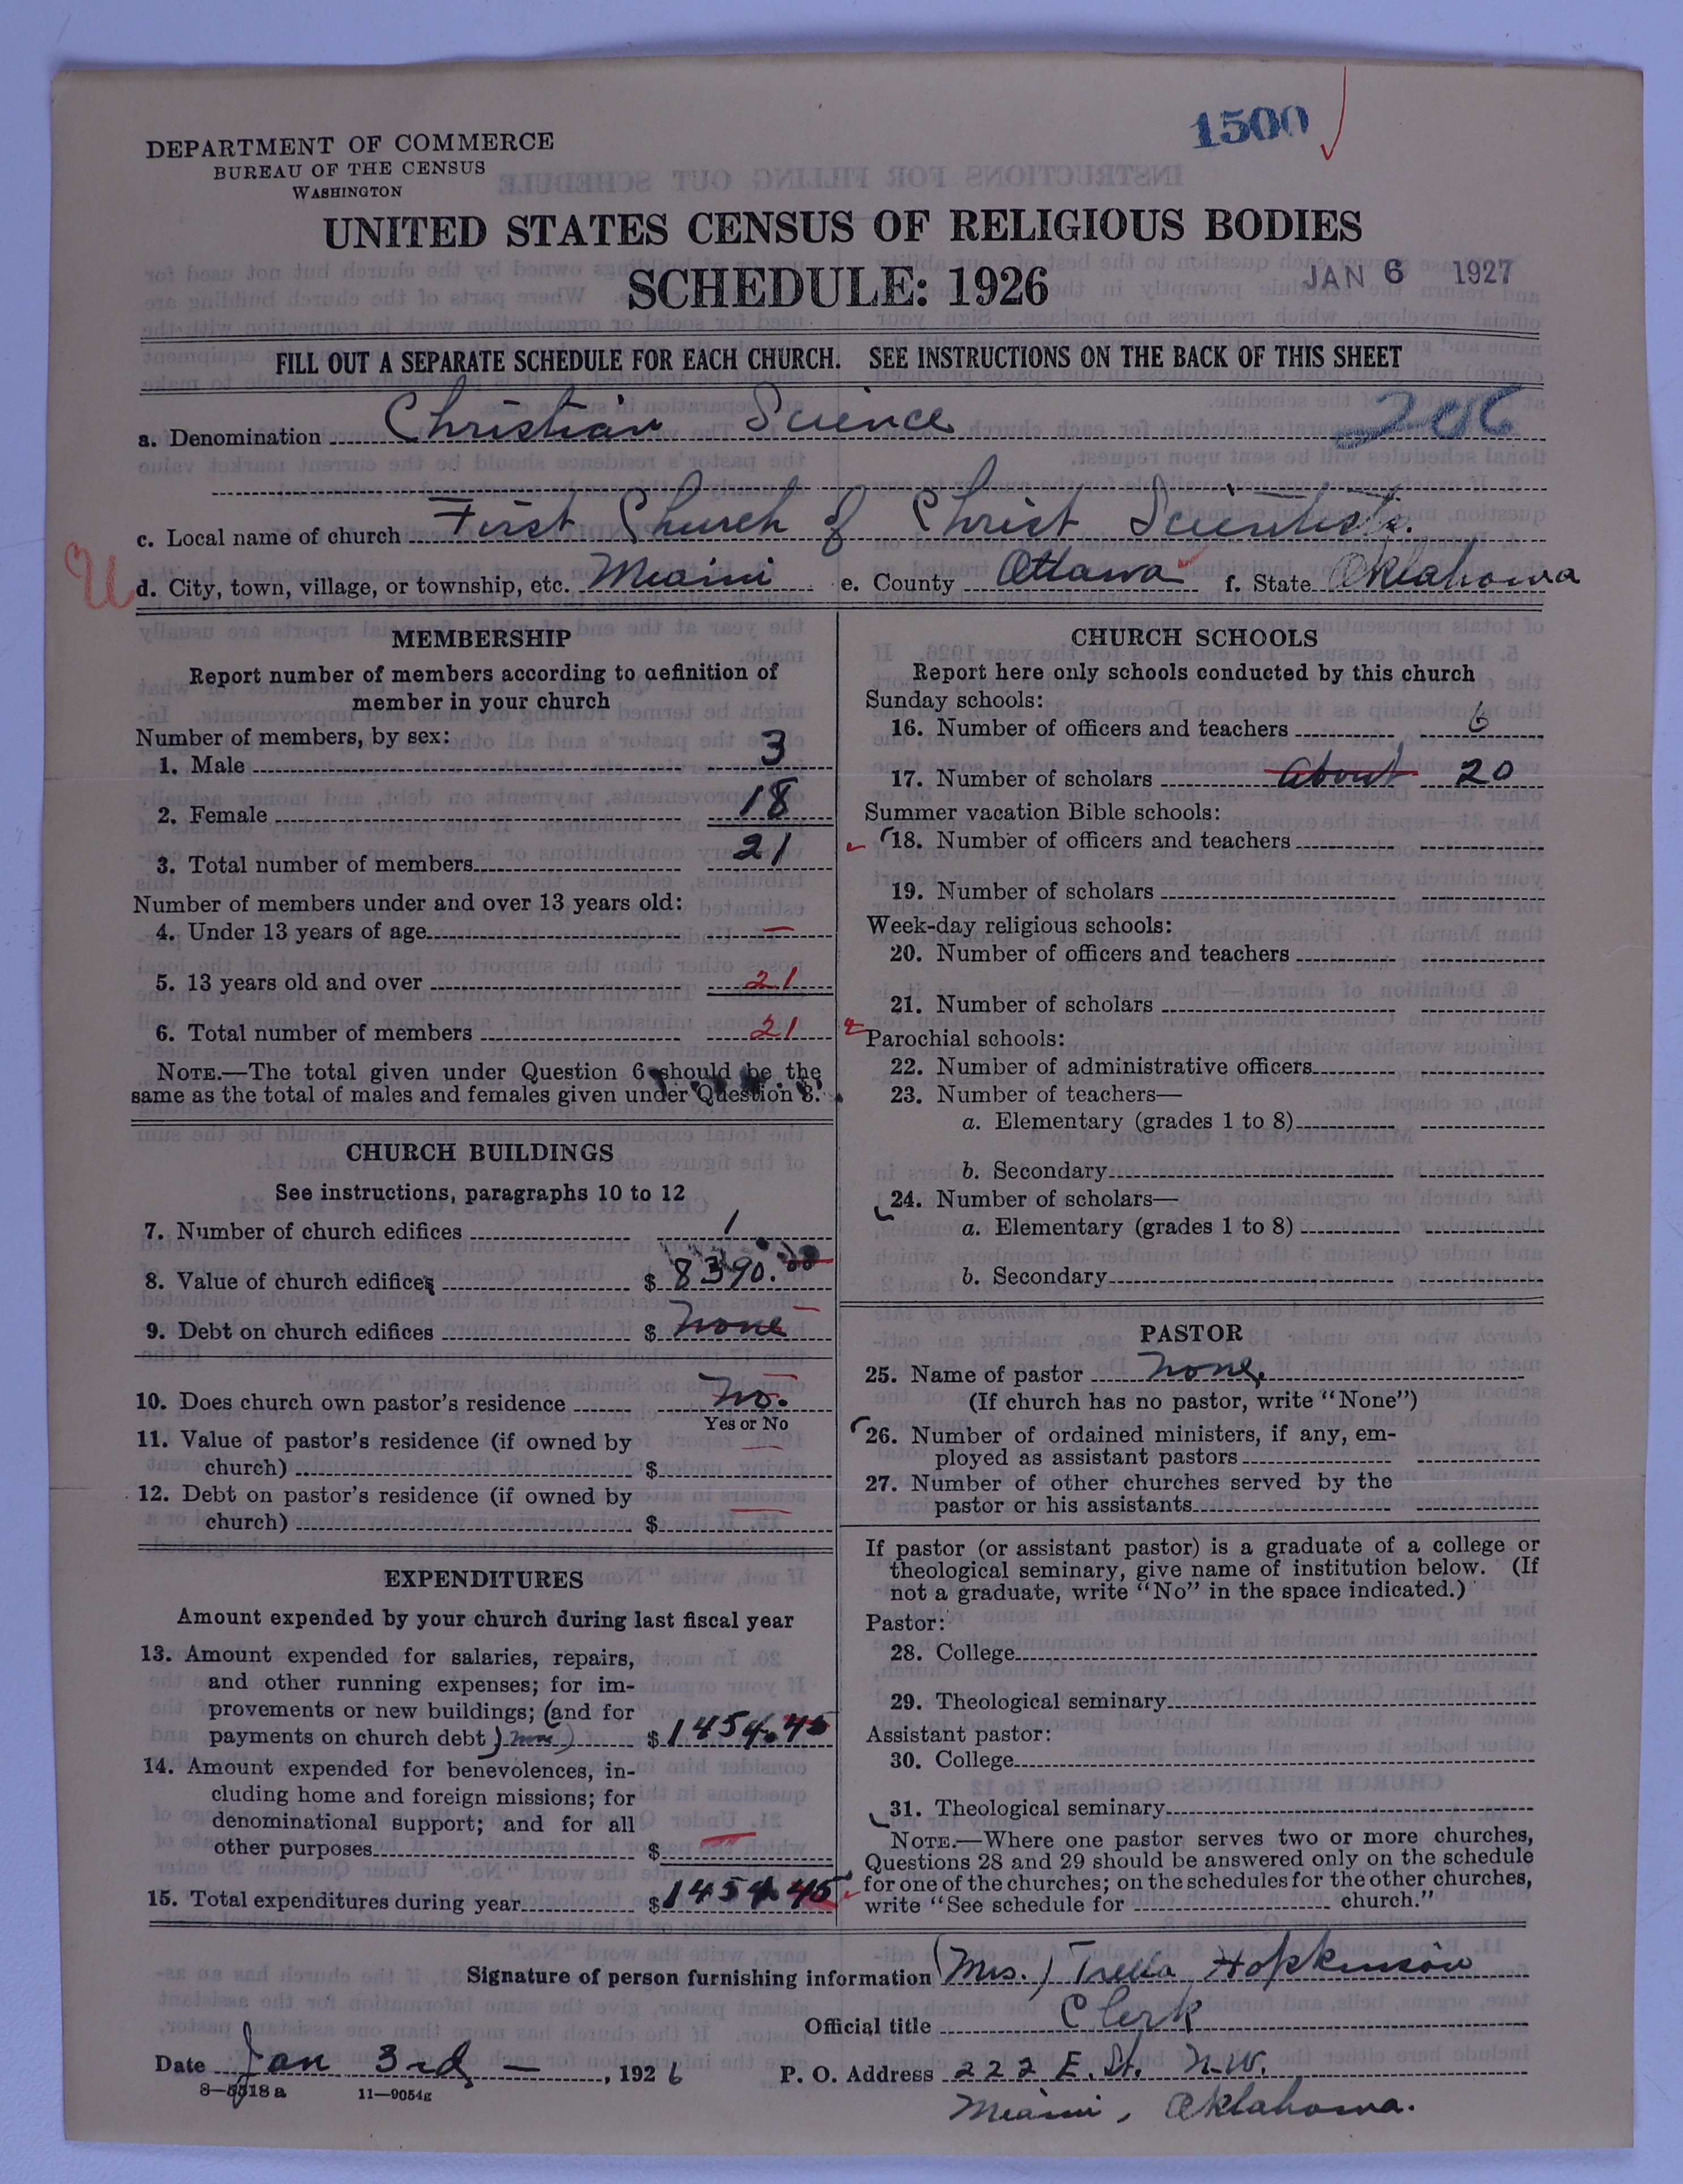 1500
DEPARTMENT OF COMMERCE
BUREAU OF THE CENSUS
WASHINGTON
UNITED STATES CENSUS OF RELIGIOUS BODIES
SCHEDULE: 1926
JAN 6 1927
FILL OUT A SEPARATE SCHEDULE FOR EACH CHURCH. SEE INSTRUCTIONS ON THE BACK OF THIS SHEET
a. Denomination Christian Science 206
c. Local name of church First Church of Christ Scientists.
U d. City, town, village, or township, etc. Miami e. County Ottawa f. State Oklahoma
MEMBERSHIP
Report number of members according to definition of
member in your church
Number of members, by sex:
1. Male 3
2. Female 18
3. Total number of members 21
Number of members under and over 13 years old:
4. Under 13 years of age —
5. 13 years old and over 21
6. Total number of members 21
NOTE.—The total given under Question 6 should be the
same as the total of males and females given under Question 3.
CHURCH BUILDINGS
See instructions, paragraphs 10 to 12
7. Number of church edifices 1
8. Value of church edifices $ 8390.00
9. Debt on church edifices $ none
10. Does church own pastor's residence no.
Yes or No
11. Value of pastor's residence (if owned by
church) $ —
12. Debt on pastor's residence (if owned by
church) $ —
EXPENDITURES
Amount expended by your church during last fiscal year
13. Amount expended for salaries, repairs,
and other running expenses; for im-
provements or new buildings; (and for
payments on church debt) (none) $ 1454.45
14. Amount expended for benevolences, in-
cluding home and foreign missions; for
denominational support; and for all
other purposes $ —
15. Total expenditures during year $ 1454.45
CHURCH SCHOOLS
Report here only schools conducted by this church
Sunday schools:
16. Number of officers and teachers 6
17. Number of scholars about 20
Summer vacation Bible schools:
18. Number of officers and teachers
19. Number of scholars
Week-day religious schools:
20. Number of officers and teachers
21. Number of scholars
Parochial schools:
22. Number of administrative officers
23. Number of teachers—
a. Elementary (grades 1 to 8)
b. Secondary
24. Number of scholars—
a. Elementary (grades 1 to 8)
b. Secondary
PASTOR
25. Name of pastor none
(If church has no pastor, write "None")
26. Number of ordained ministers, if any, em-
ployed as assistant pastors
27. Number of other churches served by the
pastor or his assistants
If pastor (or assistant pastor) is a graduate of a college or
theological seminary, give name of institution below. (If
not a graduate, write "No" in the space indicated.)
Pastor:
28. College
29. Theological seminary
Assistant pastor:
30. College
31. Theological seminary
NOTE.—Where one pastor serves two or more churches,
Questions 28 and 29 should be answered only on the schedule
for one of the churches; on the schedules for the other churches,
write "See schedule for church."
Signature of person furnishing information (Mrs.) Trella Hopkinson
Official title Clerk
Date Jan 3rd — , 1926 P. O. Address 222 E. St. N.W.
8—5518a 11—9054g
Miami, Oklahoma.